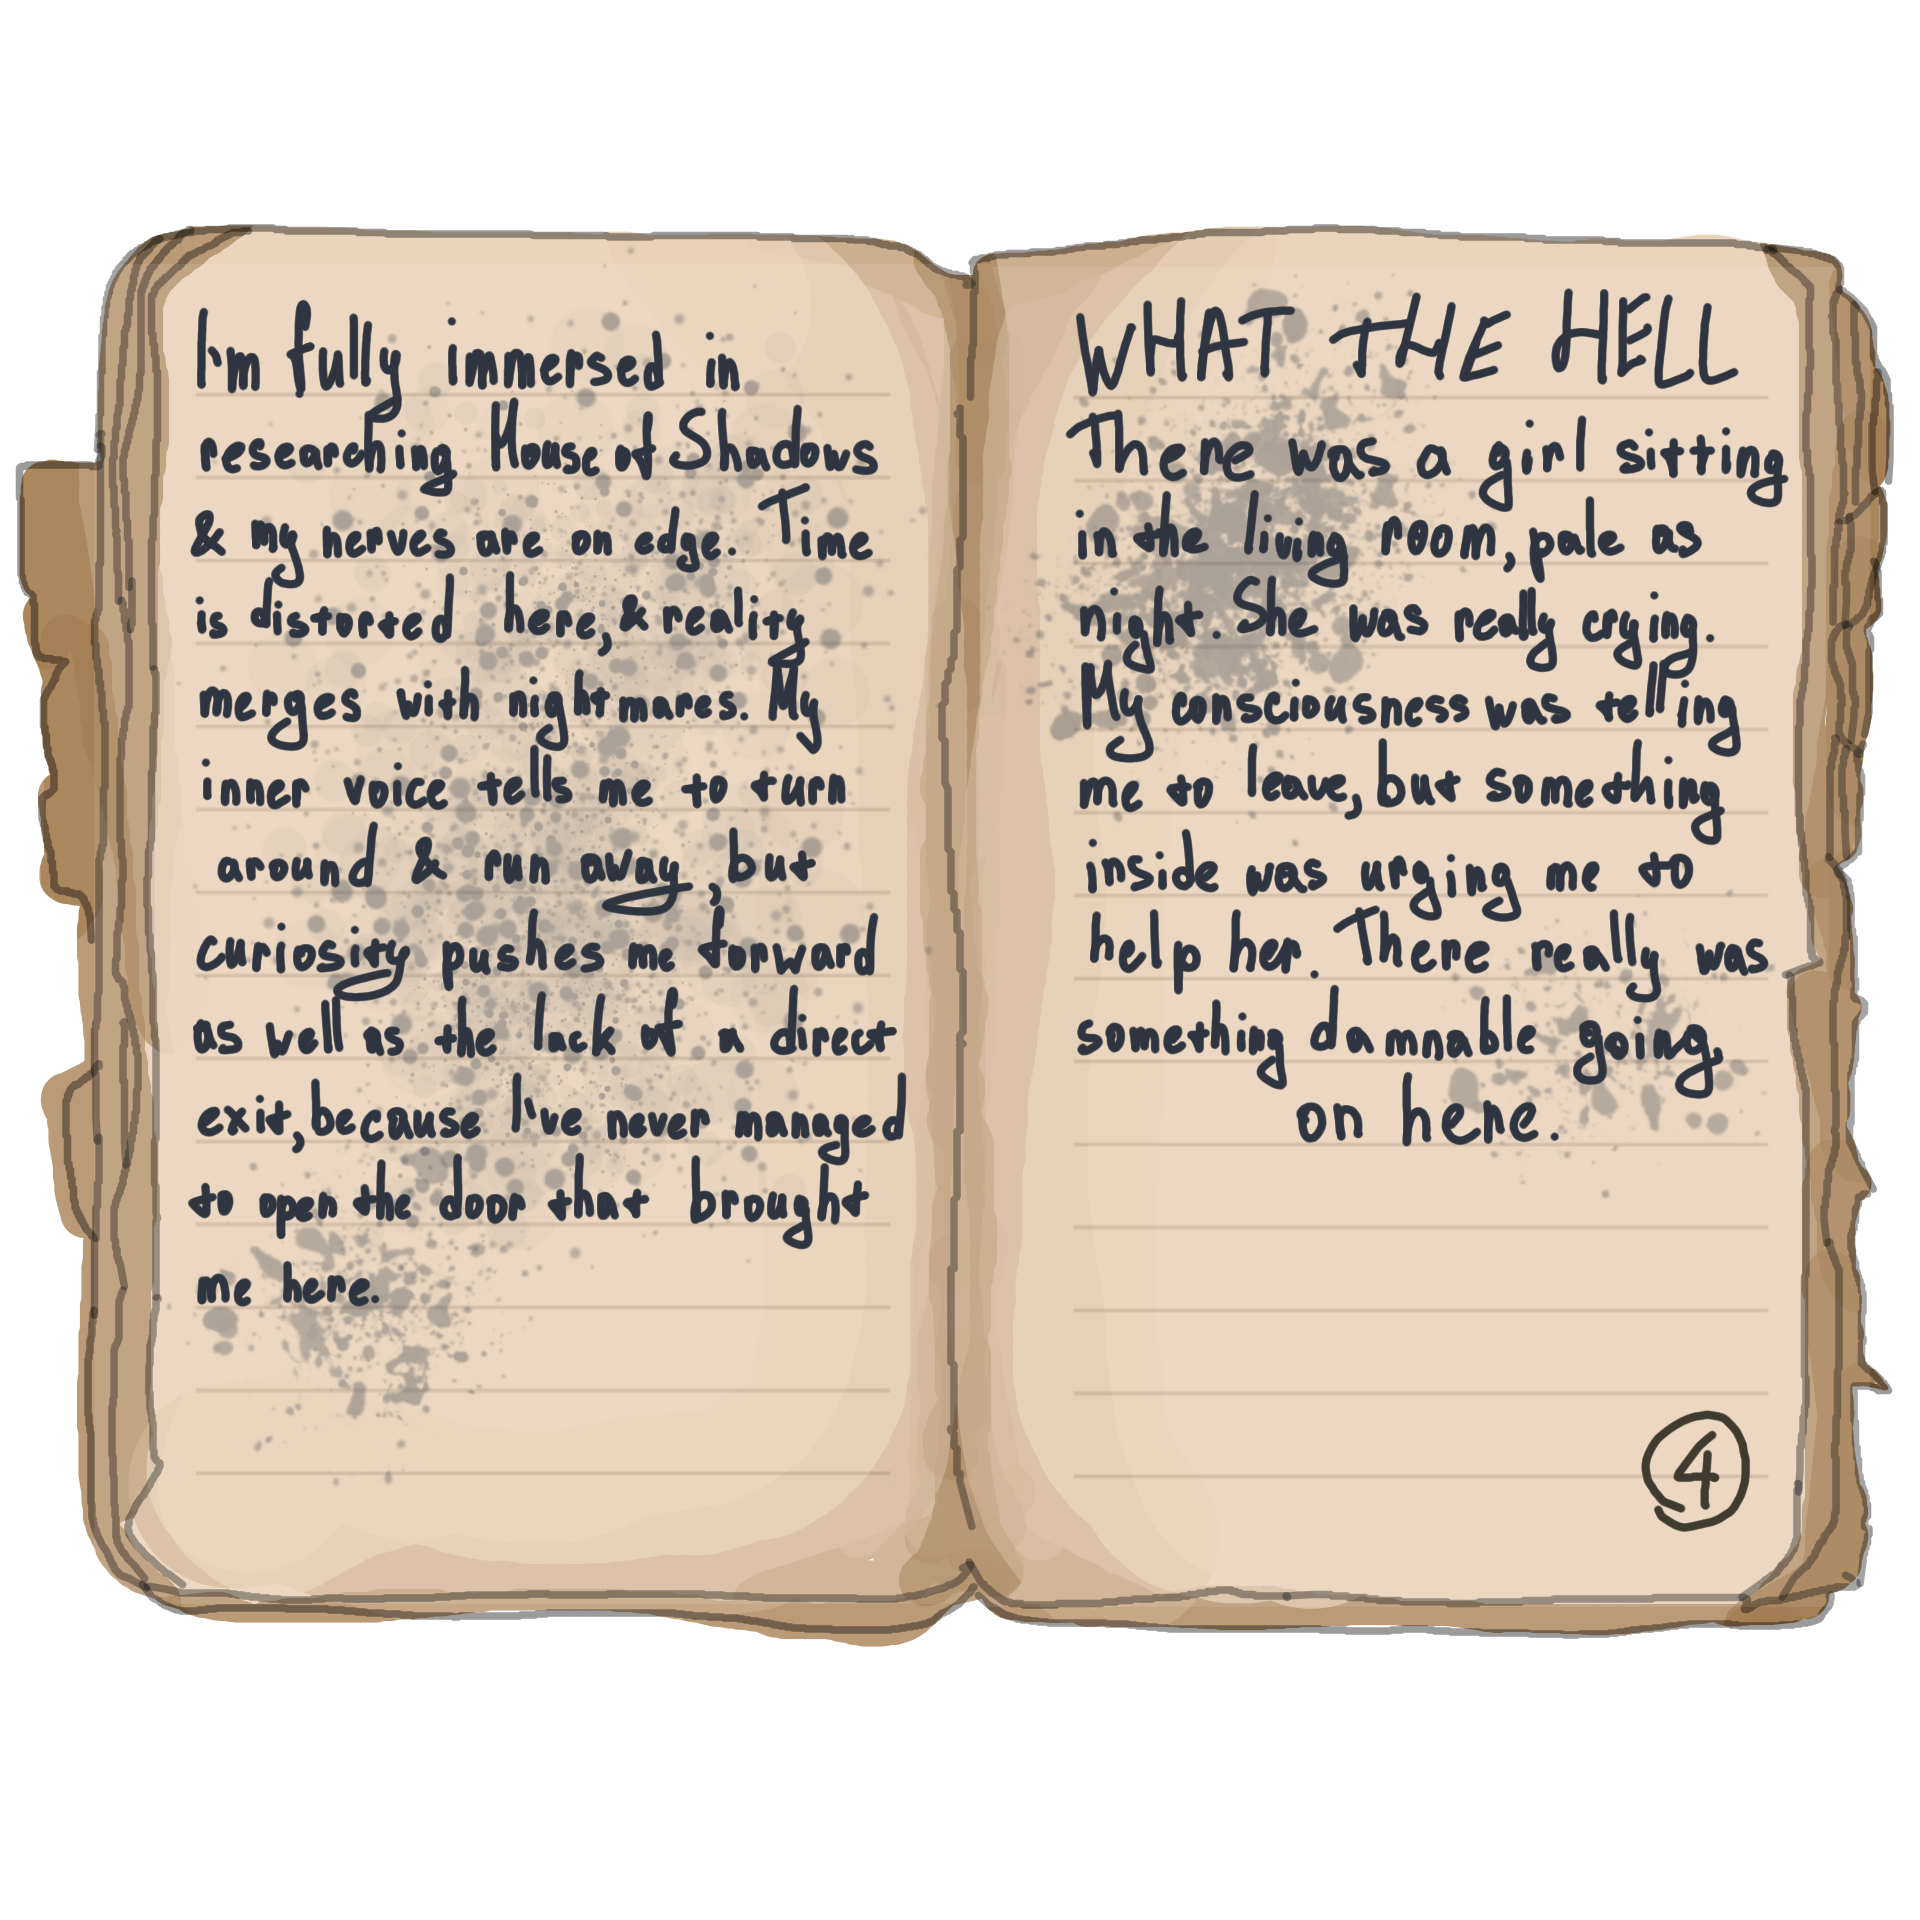 I'm fully immersed in
researching House of Shadows
& my nerves are on edge. Time
is distorted here, & reality
merges with nightmares. My
inner voice tells me to turn
around & run away, but
curiosity pushes me forward
as well as the lack of a direct
exit, because I've never managed
to open the door that brought
me here.
WHAT THE HELL
There was a girl sitting
in the living room, pale as
night. She was really crying.
My consciousness was telling
me to leave, but something
inside was urging me to
help her. There really was
something damnable going
on here.
4